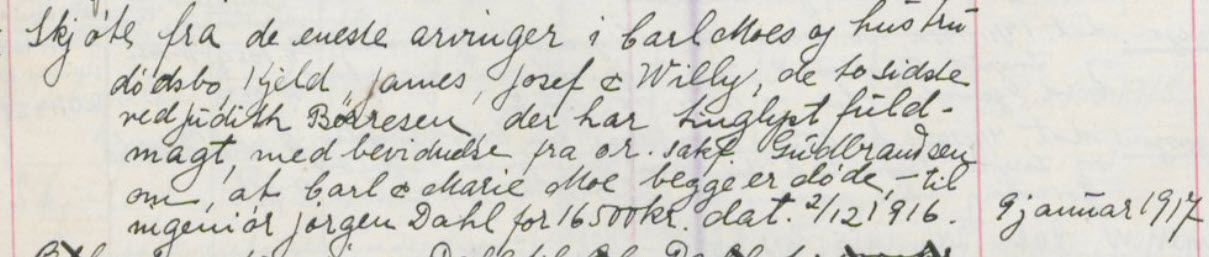 Skjøte fra de eneste arvinger i Carl Moes og hustru
dødsbo, Kjeld, James, Josef & Willy, de to sidste
ved Judith Børresen, der har tinglyst fuld-
magt, med bevidnelse fra or. sakf. Gudbrandsen
om, at Carl & Marie Moe begge er døde, – til
ingeniør Jørgen Dahl for 16500 kr. dat. 2/12 1916. 9 januar 1917